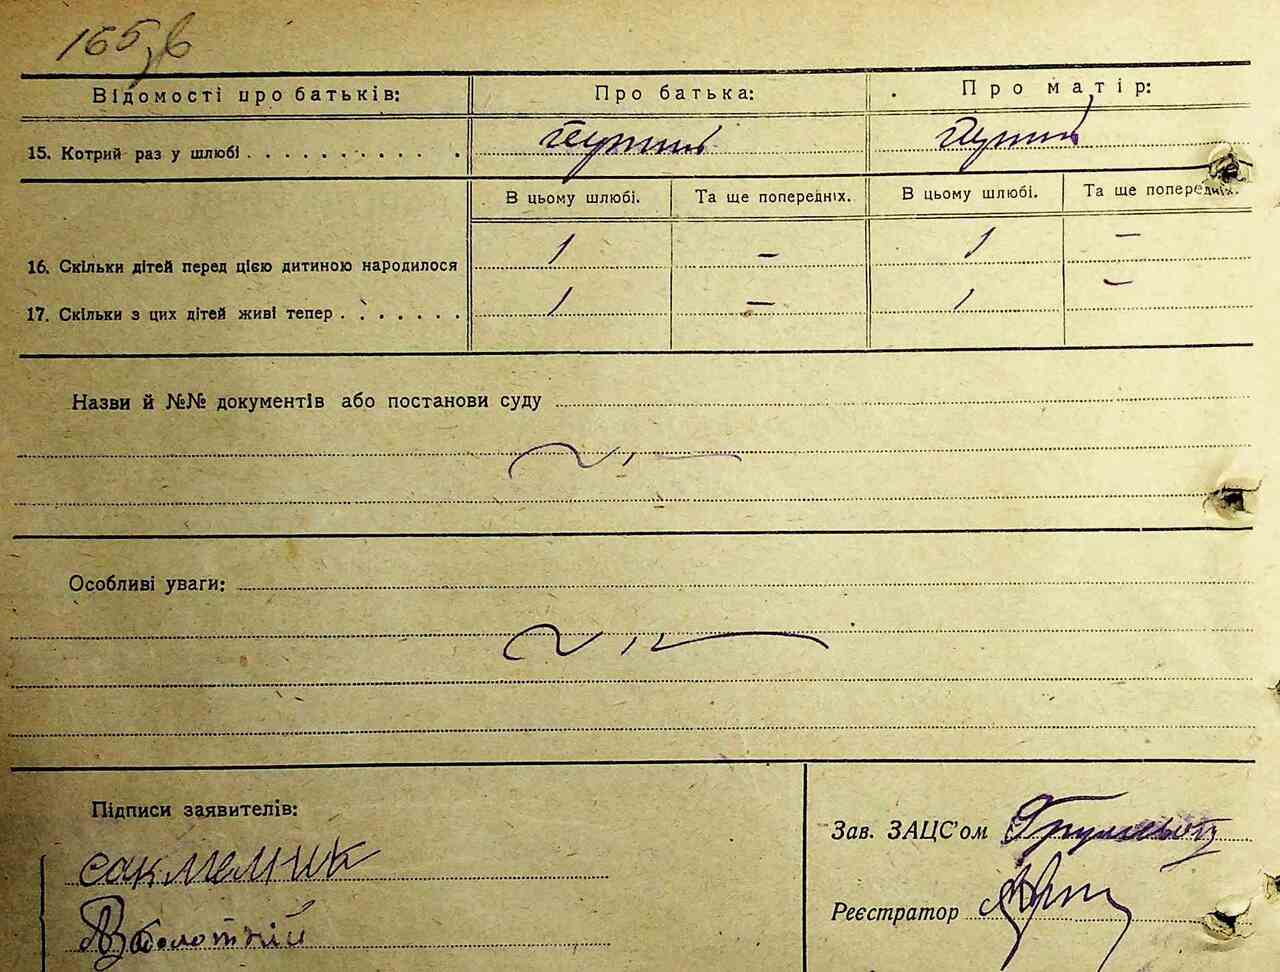 165 зв
Відомості про батьків: Про батька: Про матір:
15. Котрий раз у шлюбі . . . . . . . . . . . перший перший
В цьому шлюбі. Та ще попередніх. В цьому шлюбі. Та ще попередніх.
16. Скільки дітей перед цією дитиною народилося 1 – 1 –
17. Скільки з цих дітей живі тепер . . . . . . . 1 – 1 –
Назви й №№ документів або постанови суду
Особливі уваги:
Підписи заявителів:
Зав. ЗАЦС'ом
Реєстратор